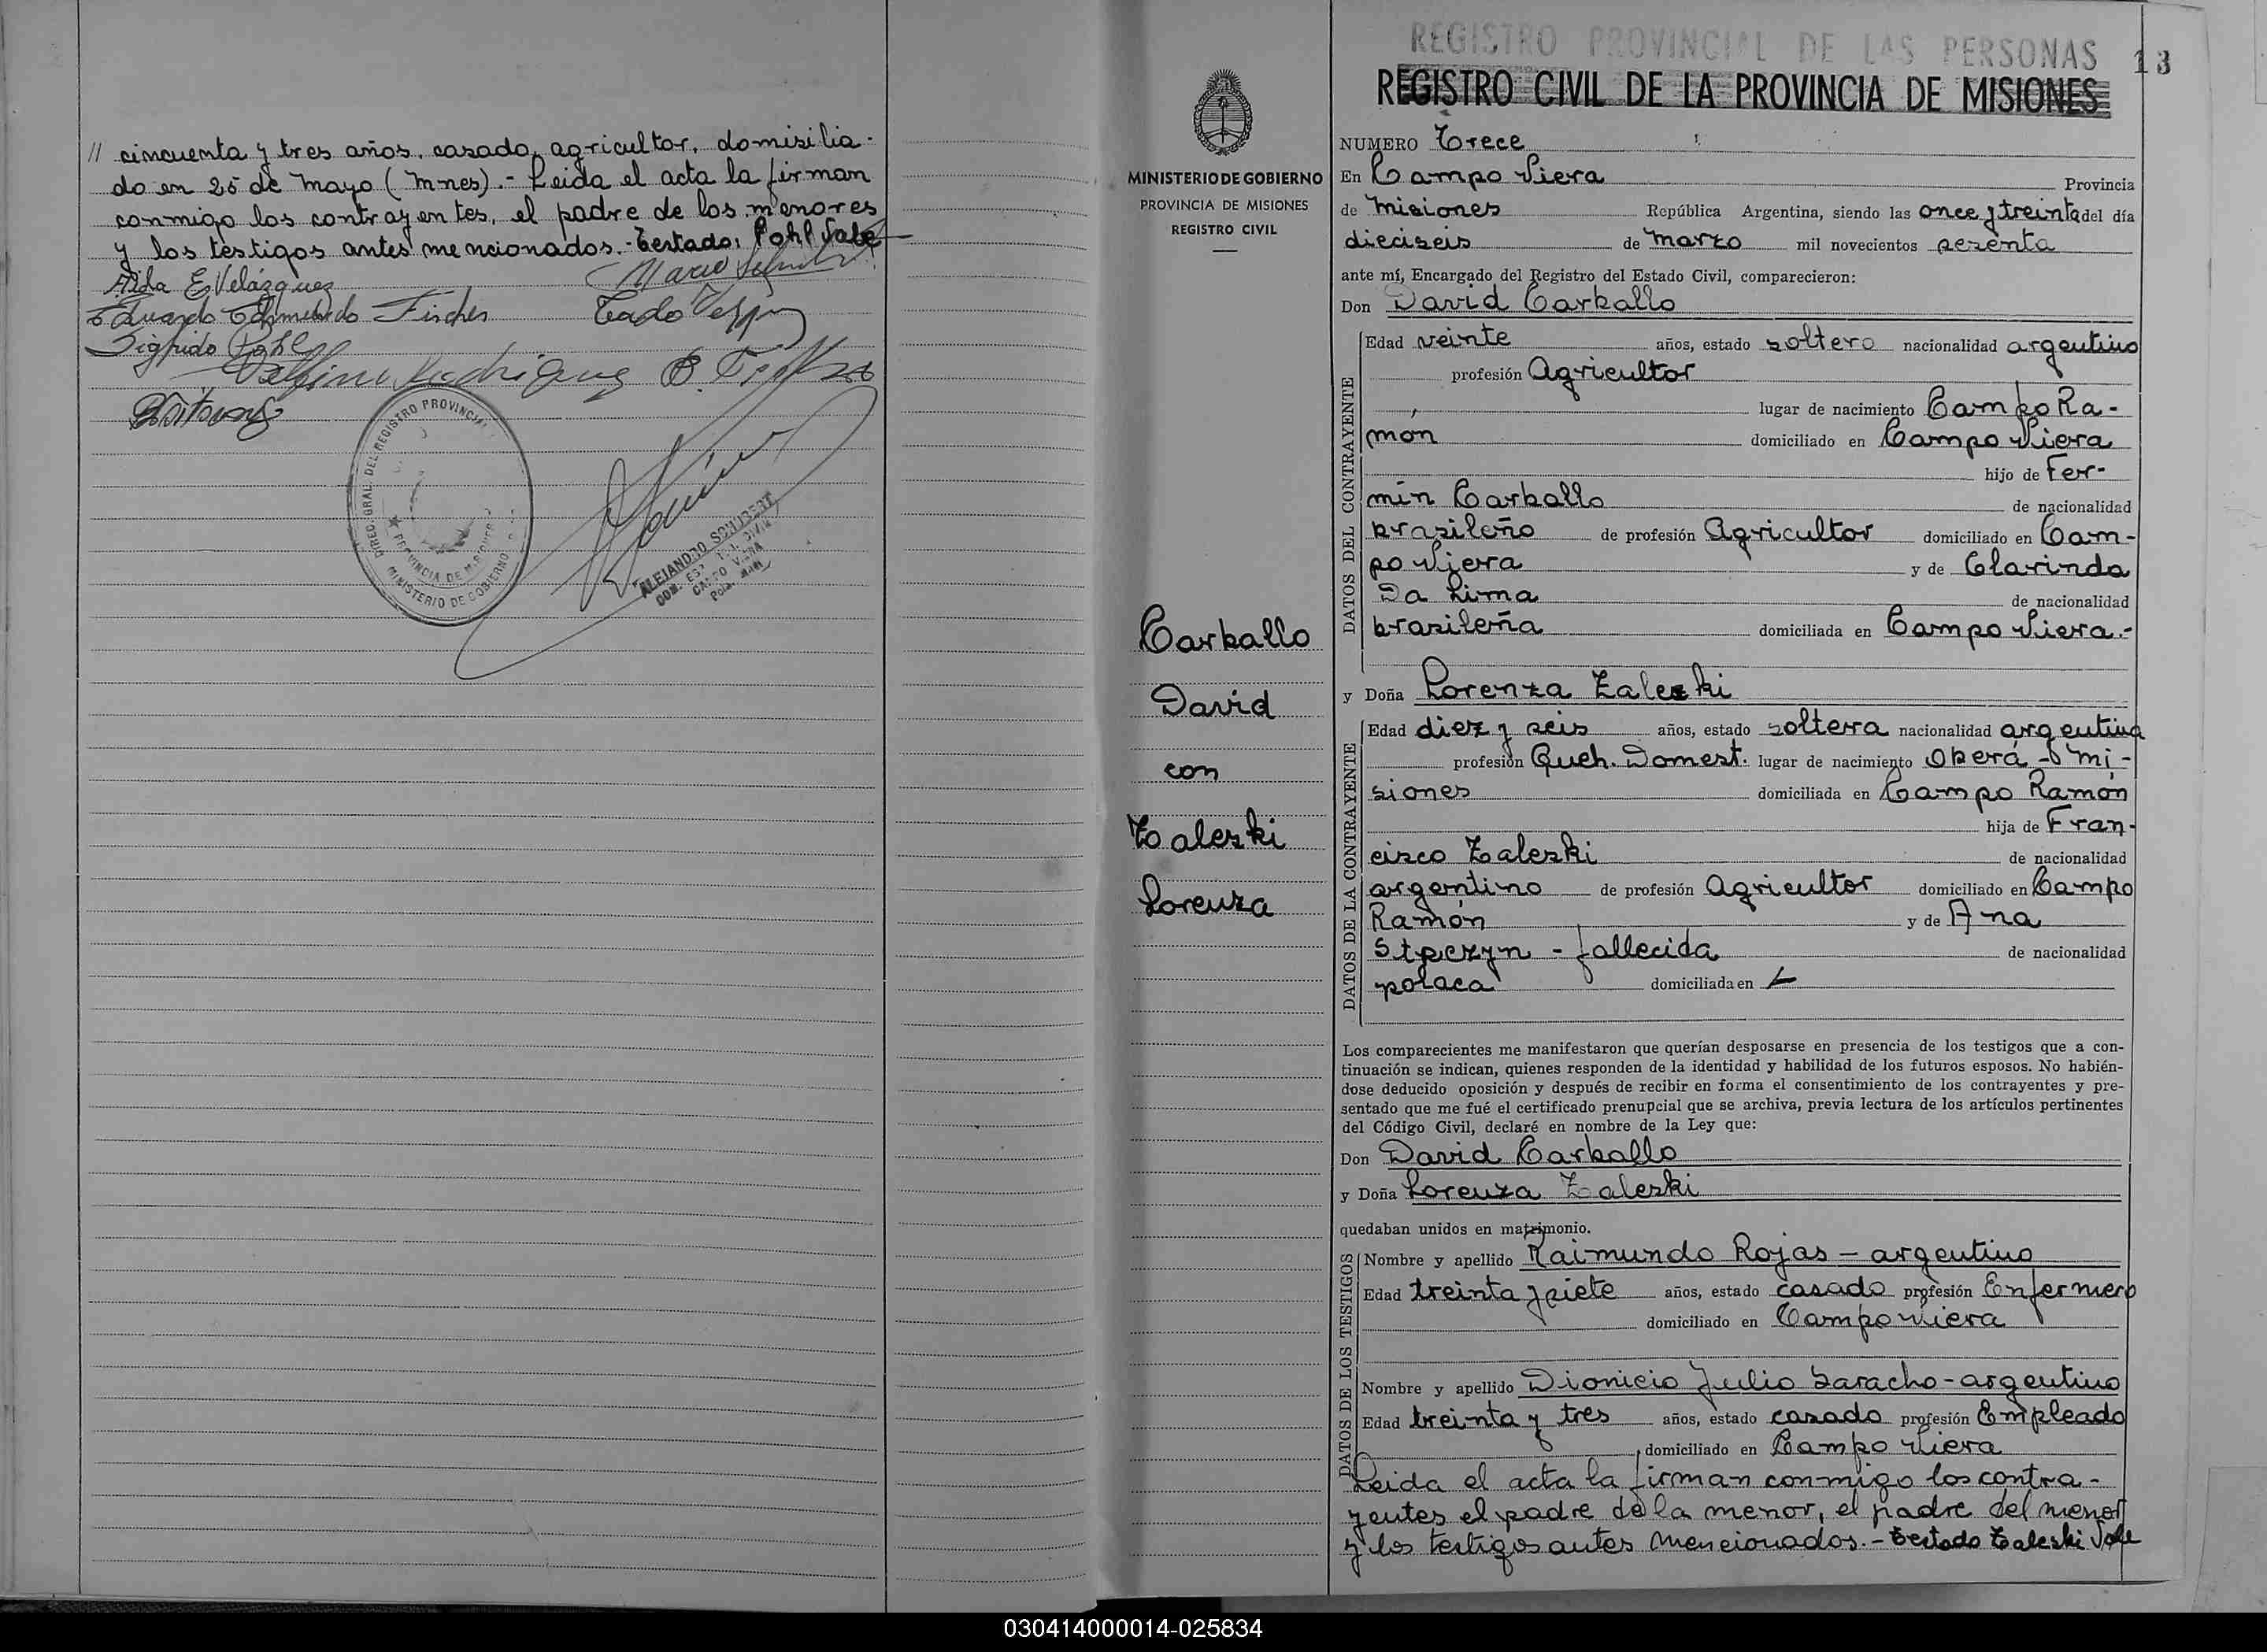 // cincuenta y tres años, casado, agricultor, domisilia-
do en 25 de Mayo (Mnes).- Leida el acta la firman
conmigo los contrayentes, el padre de los menores
y los testigos antes mencionados.- Testado: Pohl Vale
Aida E Velázquez
Eduardo Fischer
Sigfrido Pohl
Rodriguez
DIREC. GRAL. DEL REGISTRO PROVINCIAL
PROVINCIA DE MISIONES
MINISTERIO DE GOBIERNO
ALEJANDRO SCHUBERT
CAMPO VIERA
MINISTERIO DE GOBIERNO
PROVINCIA DE MISIONES
REGISTRO CIVIL
Carballo
David
con
Zaleski
Lorenza
REGISTRO PROVINCIAL DE LAS PERSONAS
13
REGISTRO CIVIL DE LA PROVINCIA DE MISIONES
NUMERO Trece
En Campo Viera Provincia
de Misiones República Argentina, siendo las once y treinta del día
dieciseis de Marzo mil novecientos sesenta
ante mí, Encargado del Registro del Estado Civil, comparecieron:
Don David Carballo
DATOS DEL CONTRAYENTE
Edad veinte años, estado soltero nacionalidad argentino
profesión Agricultor
lugar de nacimiento Campo Ra-
món domiciliado en Campo Viera
hijo de Fer-
min Carballo de nacionalidad
brasileño de profesión Agricultor domiciliado en Cam-
po Viera y de Clarinda
Da Lima de nacionalidad
brasileña domiciliada en Campo Viera.-
y Doña Lorenza Zaleski
DATOS DE LA CONTRAYENTE
Edad diez y seis años, estado soltera nacionalidad argentina
profesión Queh. Domest. lugar de nacimiento Oberá - Mi-
siones domiciliada en Campo Ramón
hija de Fran-
cisco Zaleski de nacionalidad
argentino de profesión Agricultor domiciliado en Campo
Ramón y de Ana
- fallecida de nacionalidad
polaca domiciliada en
Los comparecientes me manifestaron que querían desposarse en presencia de los testigos que a con-
tinuación se indican, quienes responden de la identidad y habilidad de los futuros esposos. No habién-
dose deducido oposición y después de recibir en forma el consentimiento de los contrayentes y pre-
sentado que me fué el certificado prenupcial que se archiva, previa lectura de los artículos pertinentes
del Código Civil, declaré en nombre de la Ley que:
Don David Carballo
y Doña Lorenza Zaleski
quedaban unidos en matrimonio.
DATOS DE LOS TESTIGOS
Nombre y apellido Raimundo Rojas - argentino
Edad treinta y siete años, estado casado profesión Enfermero
domiciliado en Campo Viera
Nombre y apellido Dionicio Julio Saracho - argentino
Edad treinta y tres años, estado casado profesión Empleado
domiciliado en Campo Viera
Leida el acta la firman conmigo los contra-
yentes el padre de la menor, el padre del menor
y los testigos antes mencionados.- Testado Zaleski Vale
030414000014-025834